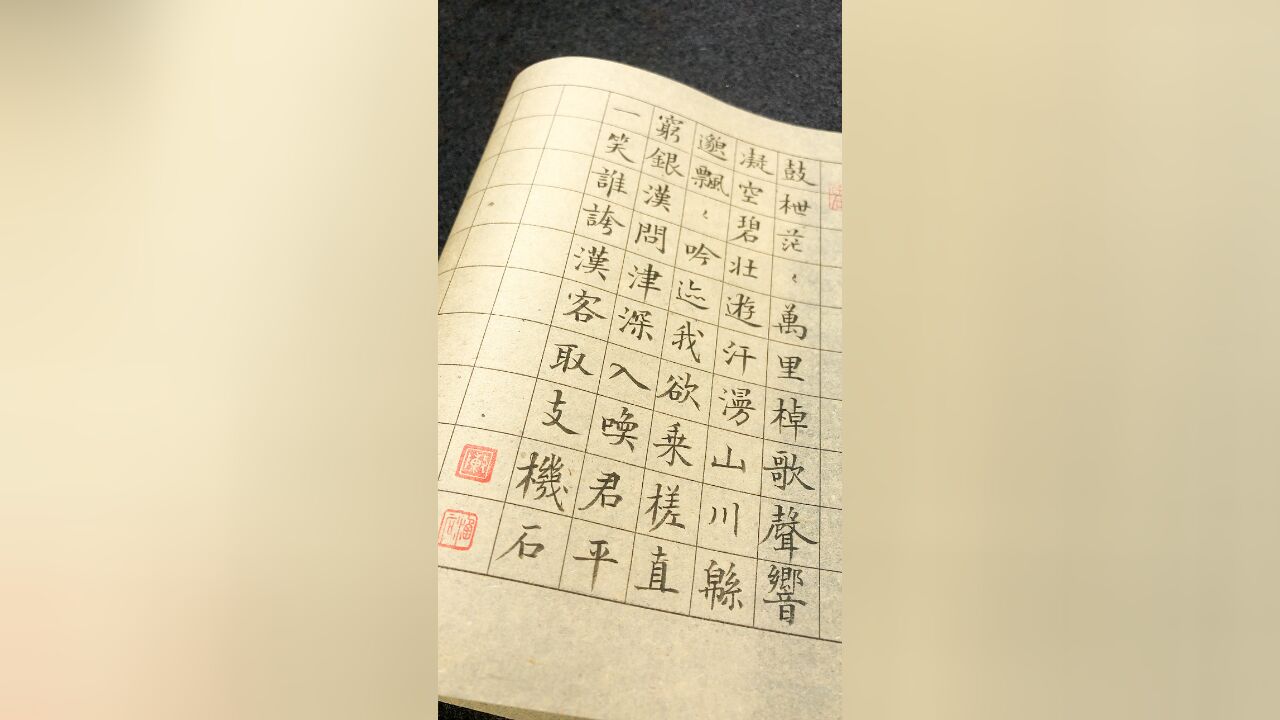 鼓枻茫〻萬里棹歌聲響
凝空碧壯遊汗漫山川緜
邈飄〻吟迹我欲乘槎直
窮銀漢問津深入喚君平
一笑誰誇漢客取支機石